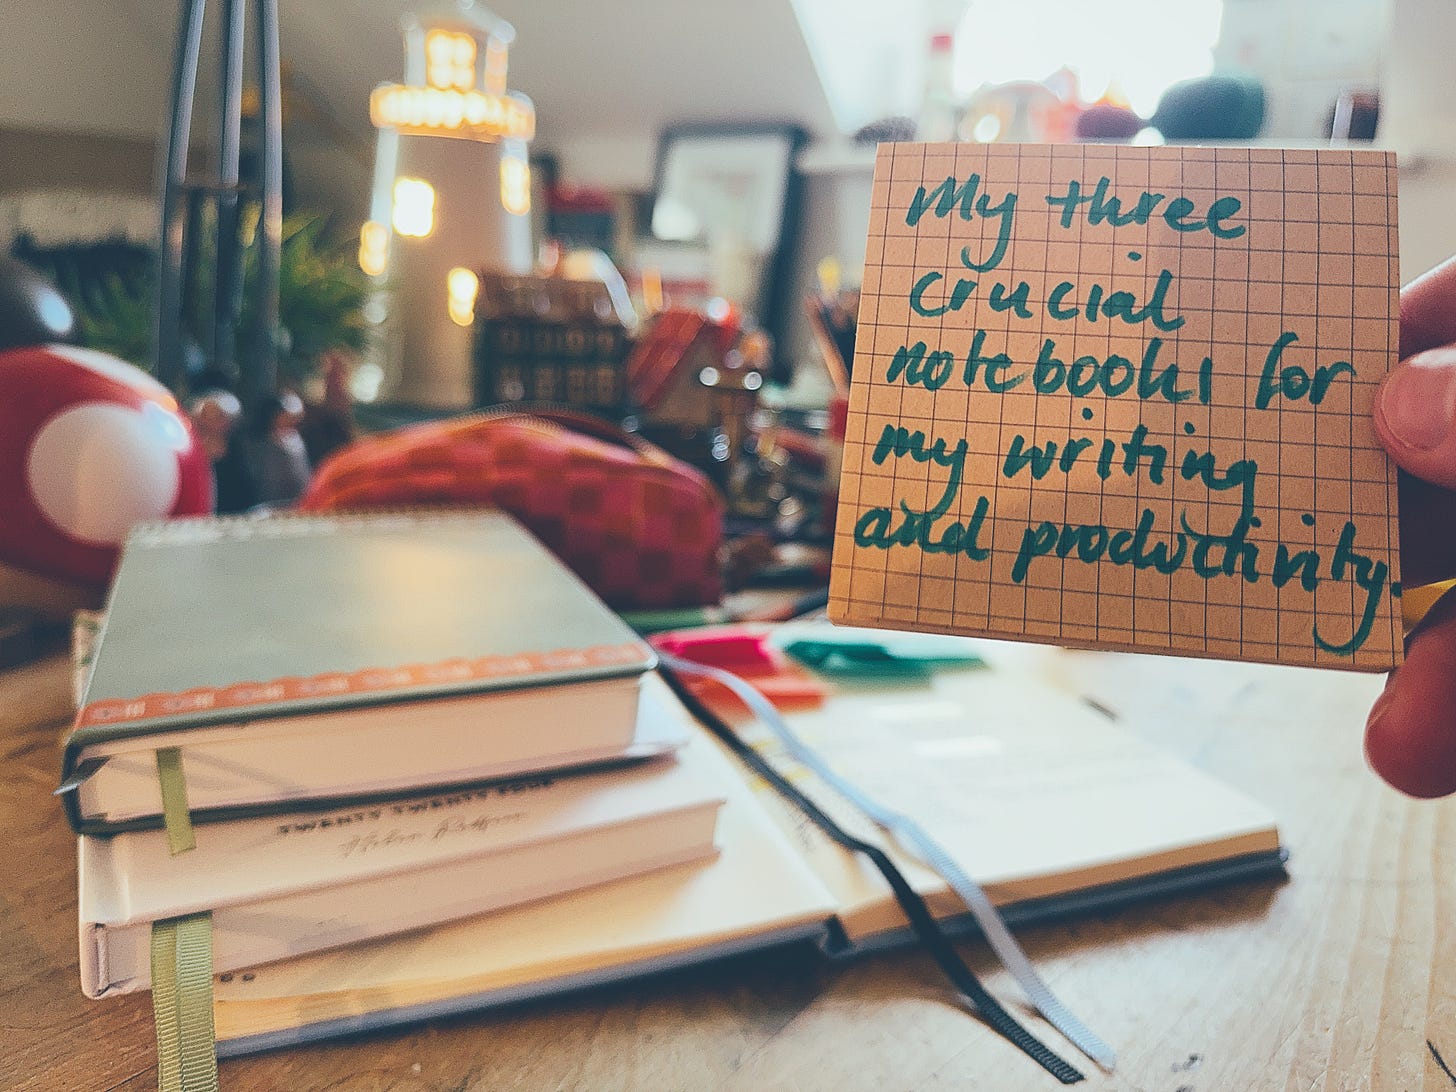 My three
crucial
notebooks for
my writing
and productivity.
TWENTY TWENTY FOUR
Helen Redfern